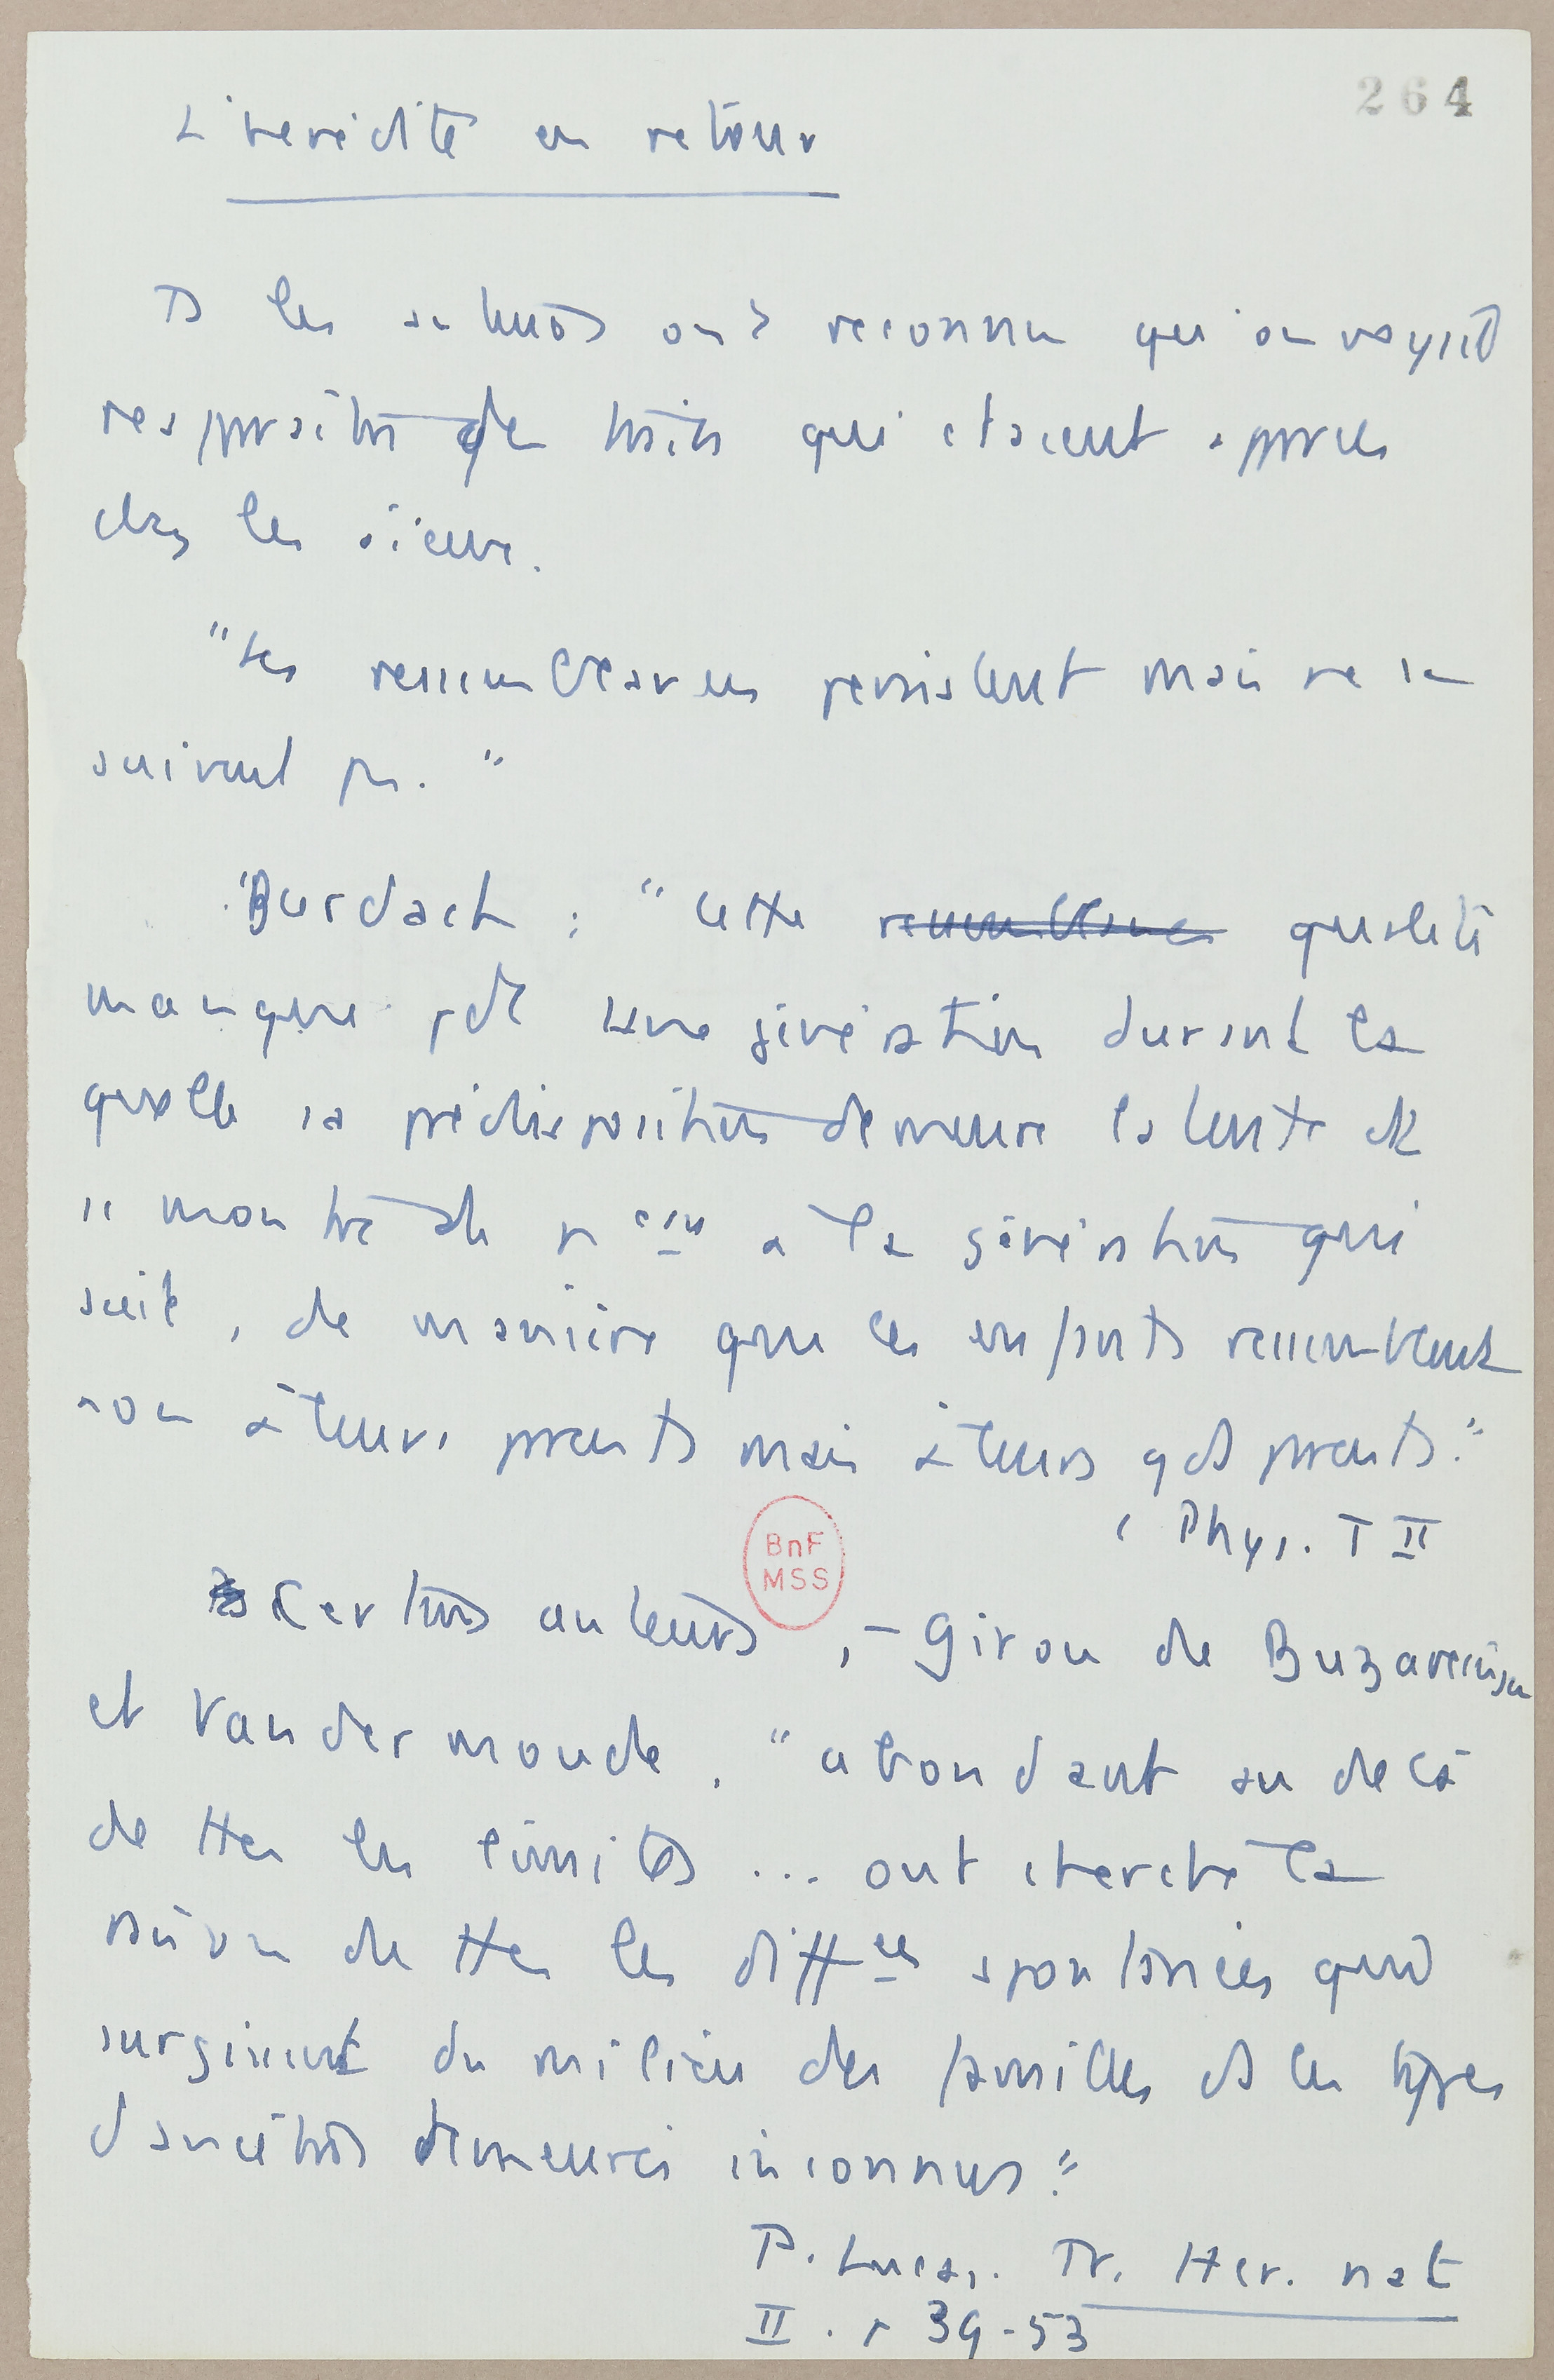 264
L'hérédité en retour
Ts les auteurs ont reconnu qu'on voyait
réapparaître des traits qui étaient apparus
chez les aïeux.
"Les ressemblances persistent mais ne se
suivent pas."
Burdach : "Cette ressemblance qualité
manque pdt une génération durant la
quelle sa prédisposition demeure latente et
se montre de nveau à la génération qui
suit, de manière que les enfants ressemblent
non à leurs parents mais à leurs gds parents."
( Phys. T II
Certains auteurs, - Girou de Buzareingues
et Vandermonde, "abondant au delà
de ttes les limites ... ont cherché la
raison de ttes les différences spontanées qui
surgissent du milieu des familles ds les types
d'ancêtres demeurés inconnus."
P. Lucas. Tr. Hér. nat
II. p 39-53
BnF
MSS